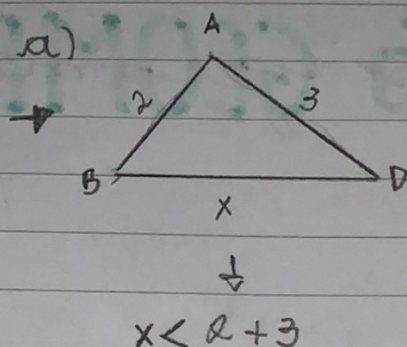 a)
A
2
3
B
D
x
x < 2 + 3